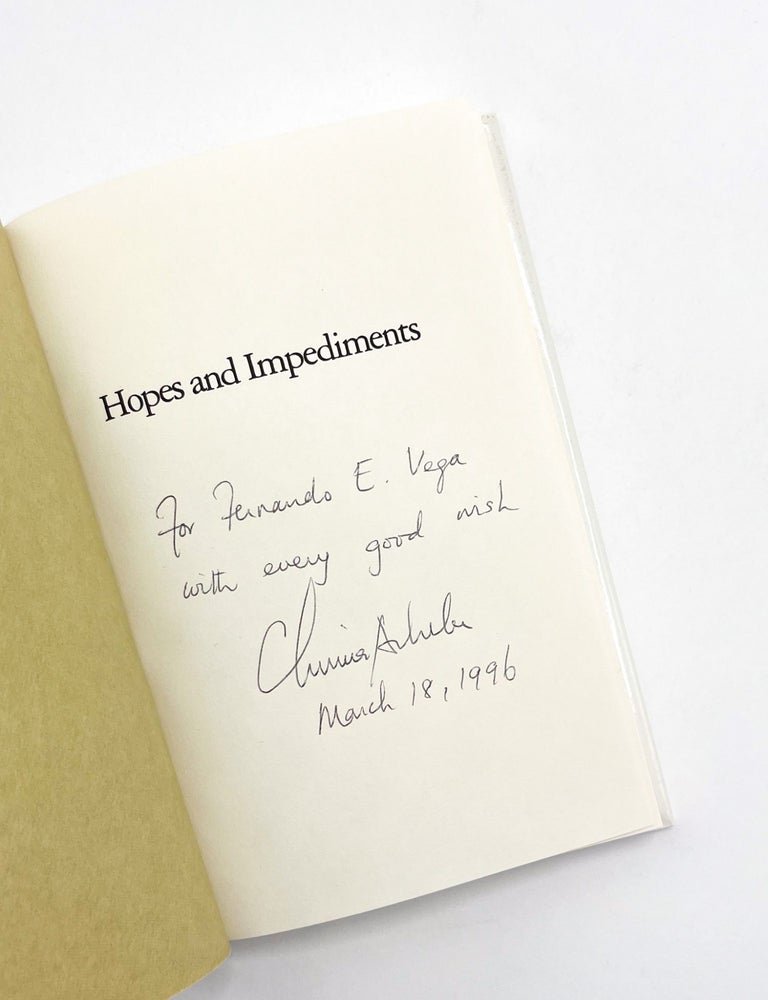 Hopes and Impediments
For Fernando E. Vega
with every good wish
Chinua Achebe
March 18, 1996